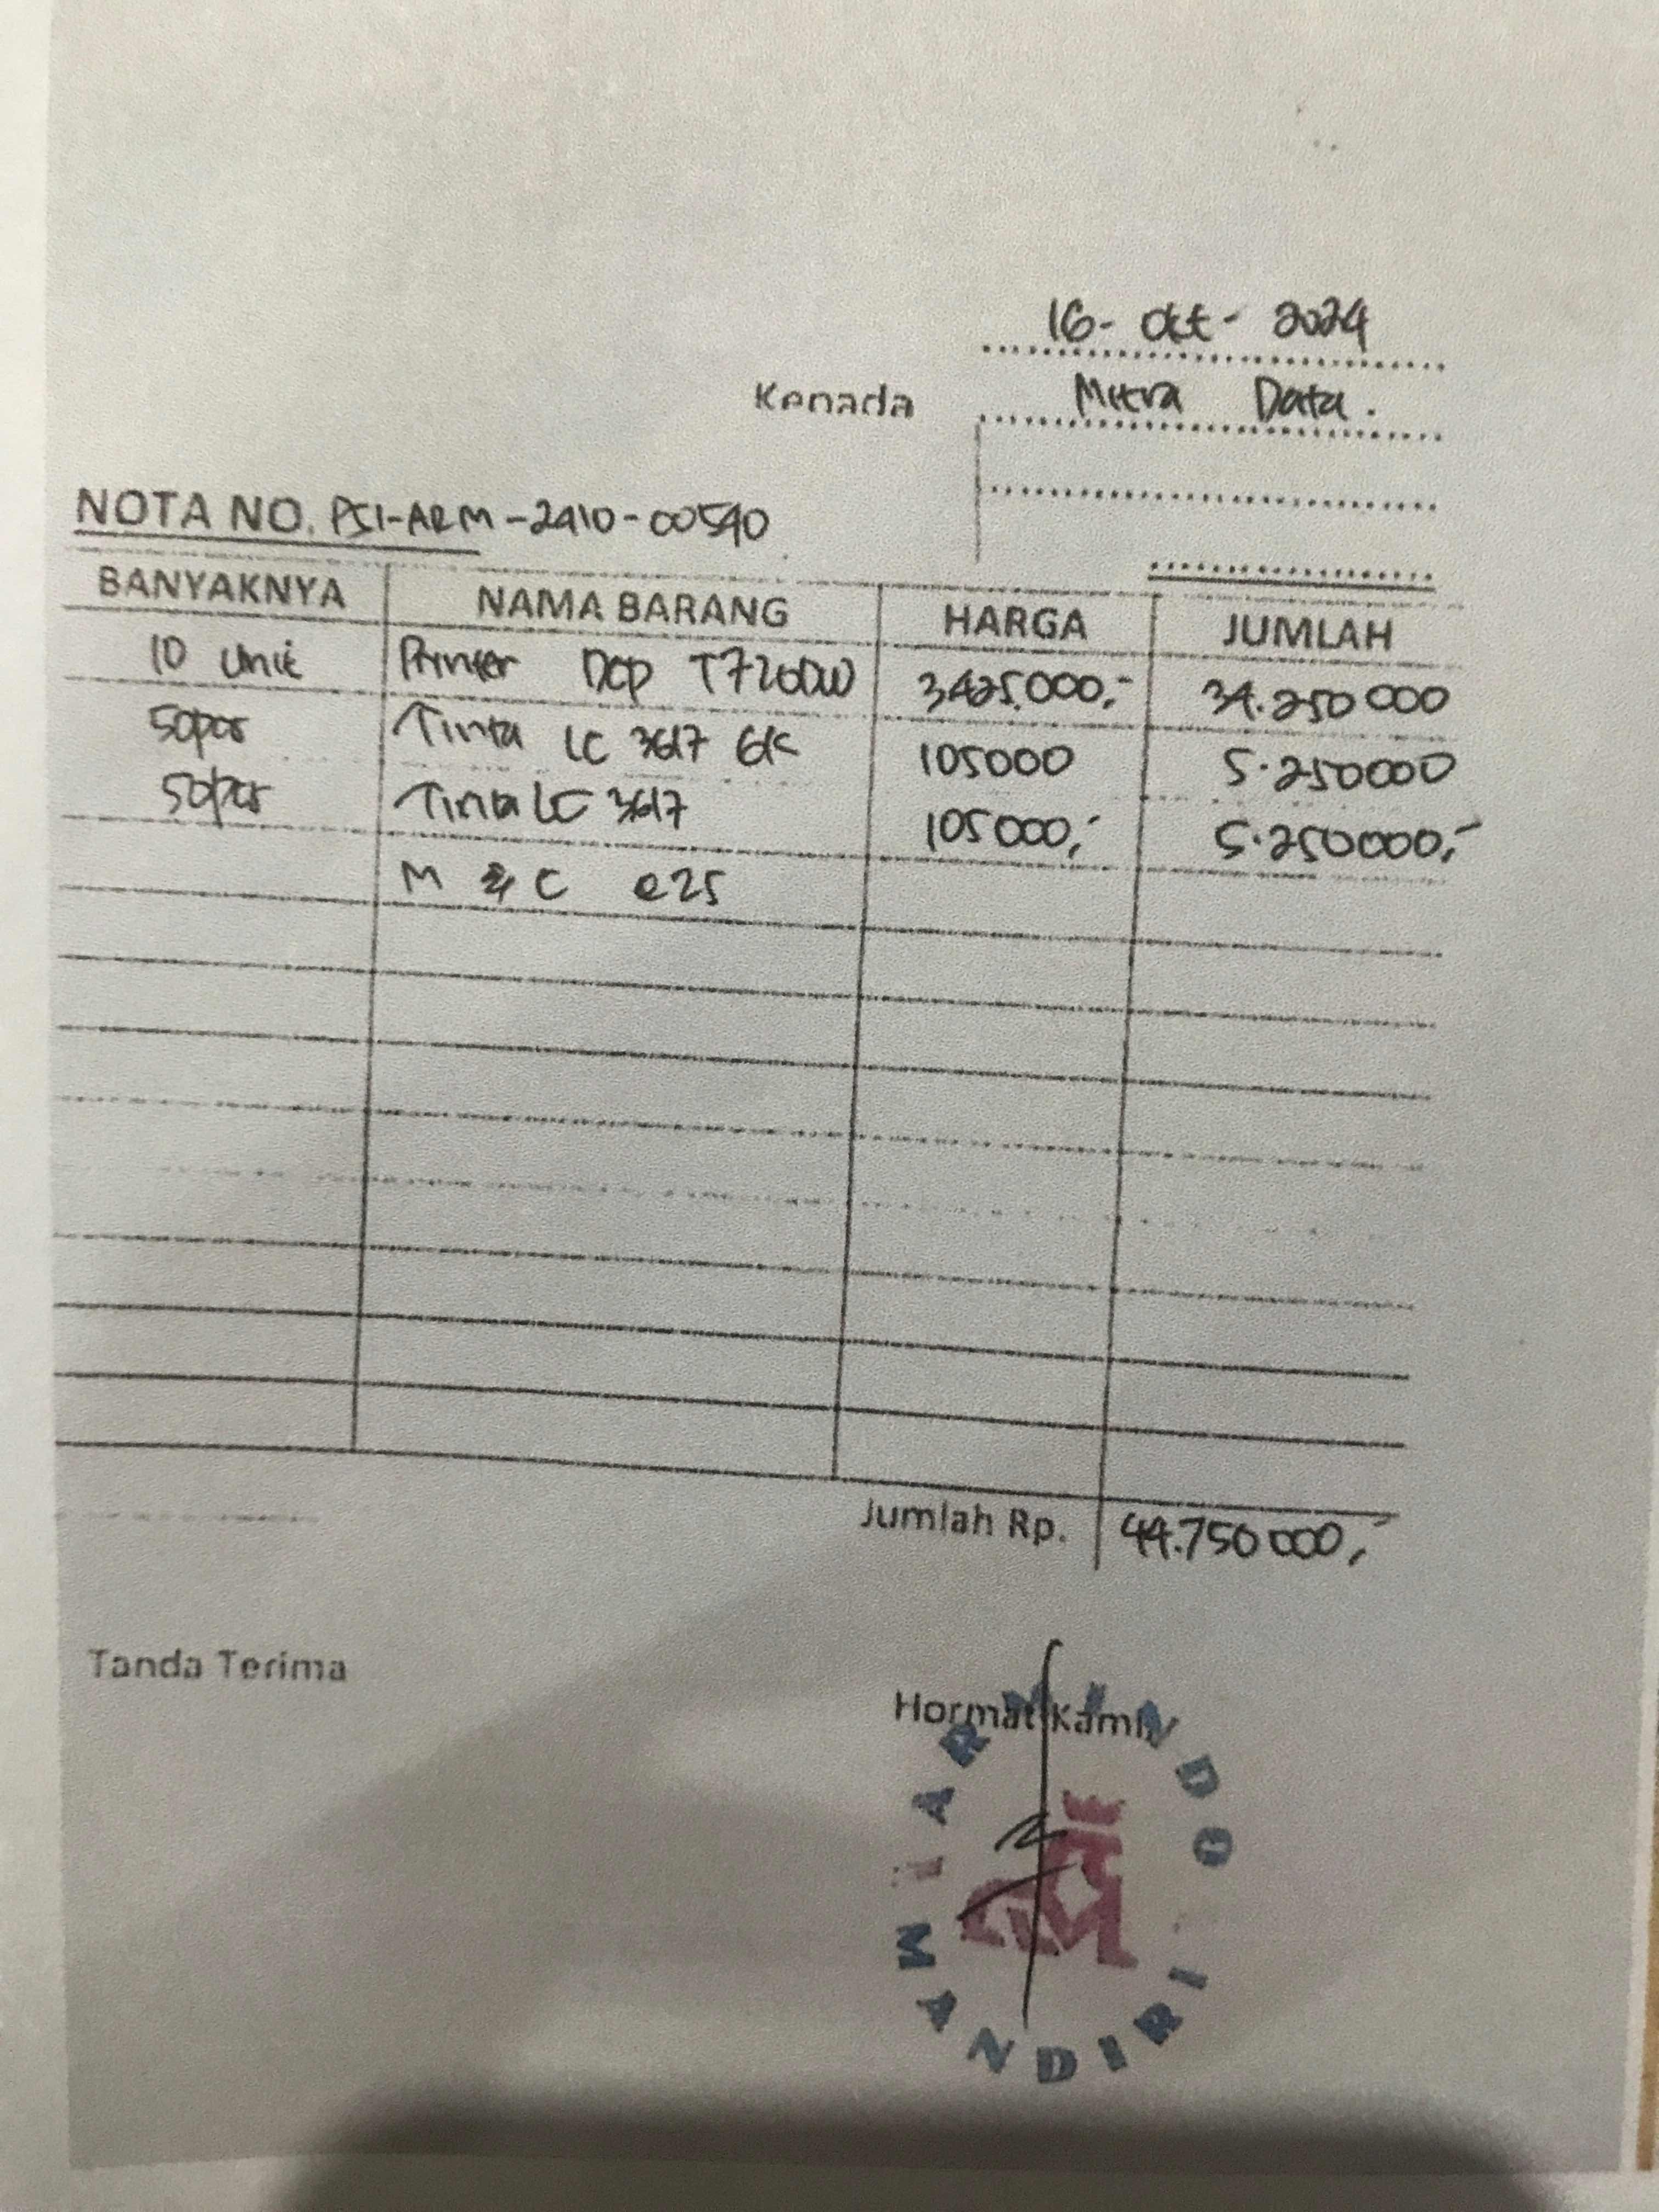 16-Okt-2024
Kepada Mitra Data.
NOTA NO. PSI-ARM-2410-00540
BANYAKNYA NAMA BARANG HARGA JUMLAH
10 Unit Printer Dcp T720DW 3425.000,- 34.250 000
50pcs Tinta LC 3617 BK 105000 5.250000
50pcs Tinta LC 3617 105000,- 5.250000,-
M & C @25
Jumlah Rp. 44.750 000,-
Tanda Terima
Hormat Kami,
MANDIRI